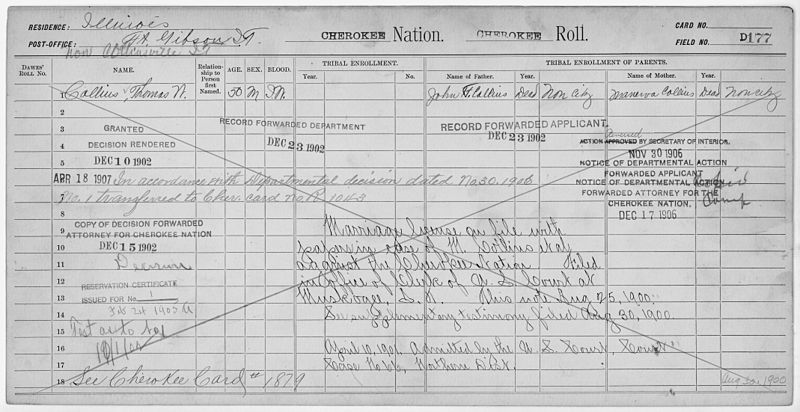 RESIDENCE: Illinois
POST-OFFICE: Ft. Gibson I.T.
Now I.T.
CHEROKEE Nation. CHEROKEE Roll.
CARD NO.
FIELD NO. D177
DAWES' ROLL NO. NAME. Relationship to Person first Named. AGE. SEX. BLOOD. TRIBAL ENROLLMENT. Year. No. TRIBAL ENROLLMENT OF PARENTS. Name of Father. Year. Name of Mother. Year.
1 Collins, Thomas W. 50 M I.W. John T. Collins Dead Non Citz Manerva Collins Dead Non citz
2
3 GRANTED
RECORD FORWARDED DEPARTMENT
DEC 23 1902
RECORD FORWARDED APPLICANT.
DEC 23 1902
4 DECISION RENDERED
5 DEC 10 1902
ACTION APPROVED BY SECRETARY OF INTERIOR.
NOV 30 1906
NOTICE OF DEPARTMENTAL ACTION
FORWARDED APPLICANT
NOTICE OF DEPARTMENTAL ACTION
FORWARDED ATTORNEY FOR THE
CHEROKEE NATION,
DEC 17 1906
6 APR 18 1907 In accordance with Departmental decision dated Nov. 30, 1906
7 No. 1 transferred to Cher. card no.
8
9 COPY OF DECISION FORWARDED
ATTORNEY FOR CHEROKEE NATION
10 DEC 15 1902
11 Decision
12 RESERVATION CERTIFICATE
13 ISSUED FOR NO. 1
14
15
16
17
Marriage license on file with
papers in case of M. Collins et al
against the Cherokee Nation Filed
in Office of Clerk of U. S. Court at
Muskogee, I. T. This note Aug 25, 1900.
See supplementary testimony filed Aug 30, 1900.
April 10, 1901. Admitted by the U. S. Court, Court
Case No 66, Northern Dist.
18 See Cherokee Card # 1879
Aug 30 1900